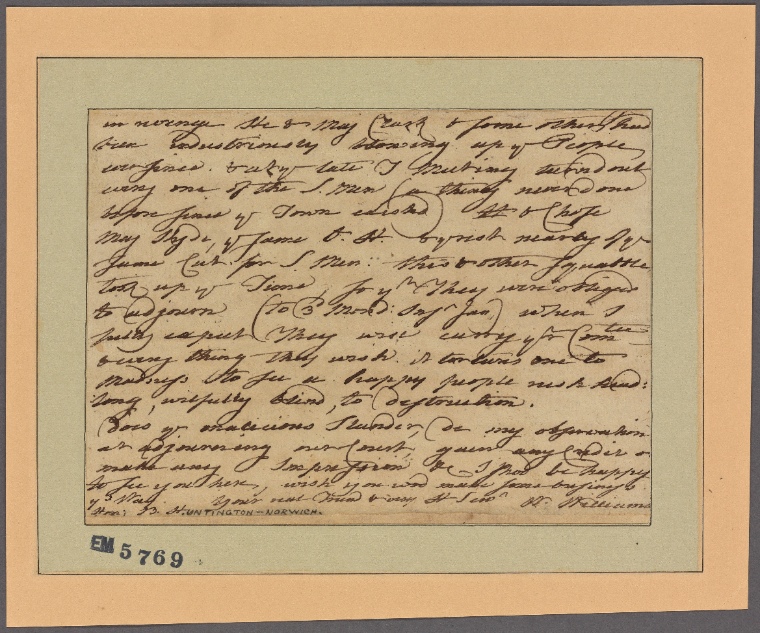 in revenge He & Maj Clark & some others, had
been Industriously blowing up yᵉ People
ever since. & at yᵉ late T Meeting turnd out
every one of the S. Men (a thing never done
before since yᵉ Town existed) & Chose
Maj Hyde, yᵉ same & yᵉ rest nearly of yᵉ
same Cut for S. Men: this & other squabble
took up yᵉ Time, so yᵐ They were obliged
to adjourn (to 3ᵈ Mond: Jan) when I
fully expect They will carry yʳ Comᵗᵉᵉ
& every thing they wish. it tortures one to
madness to see a happy people rush head:
long, wilfully blind, to destruction.
Does yᵉ malicious Slander, on my observation
at adjourning our Court, gain any Credit or
make any Impression &c I shall be happy
to see you here, wish you wod make some business
yˢ Way. Your real Friend & very Hˡ Servᵗ W. Williams
Honˡ B. HUNTINGTON—NORWICH.
EM 5769